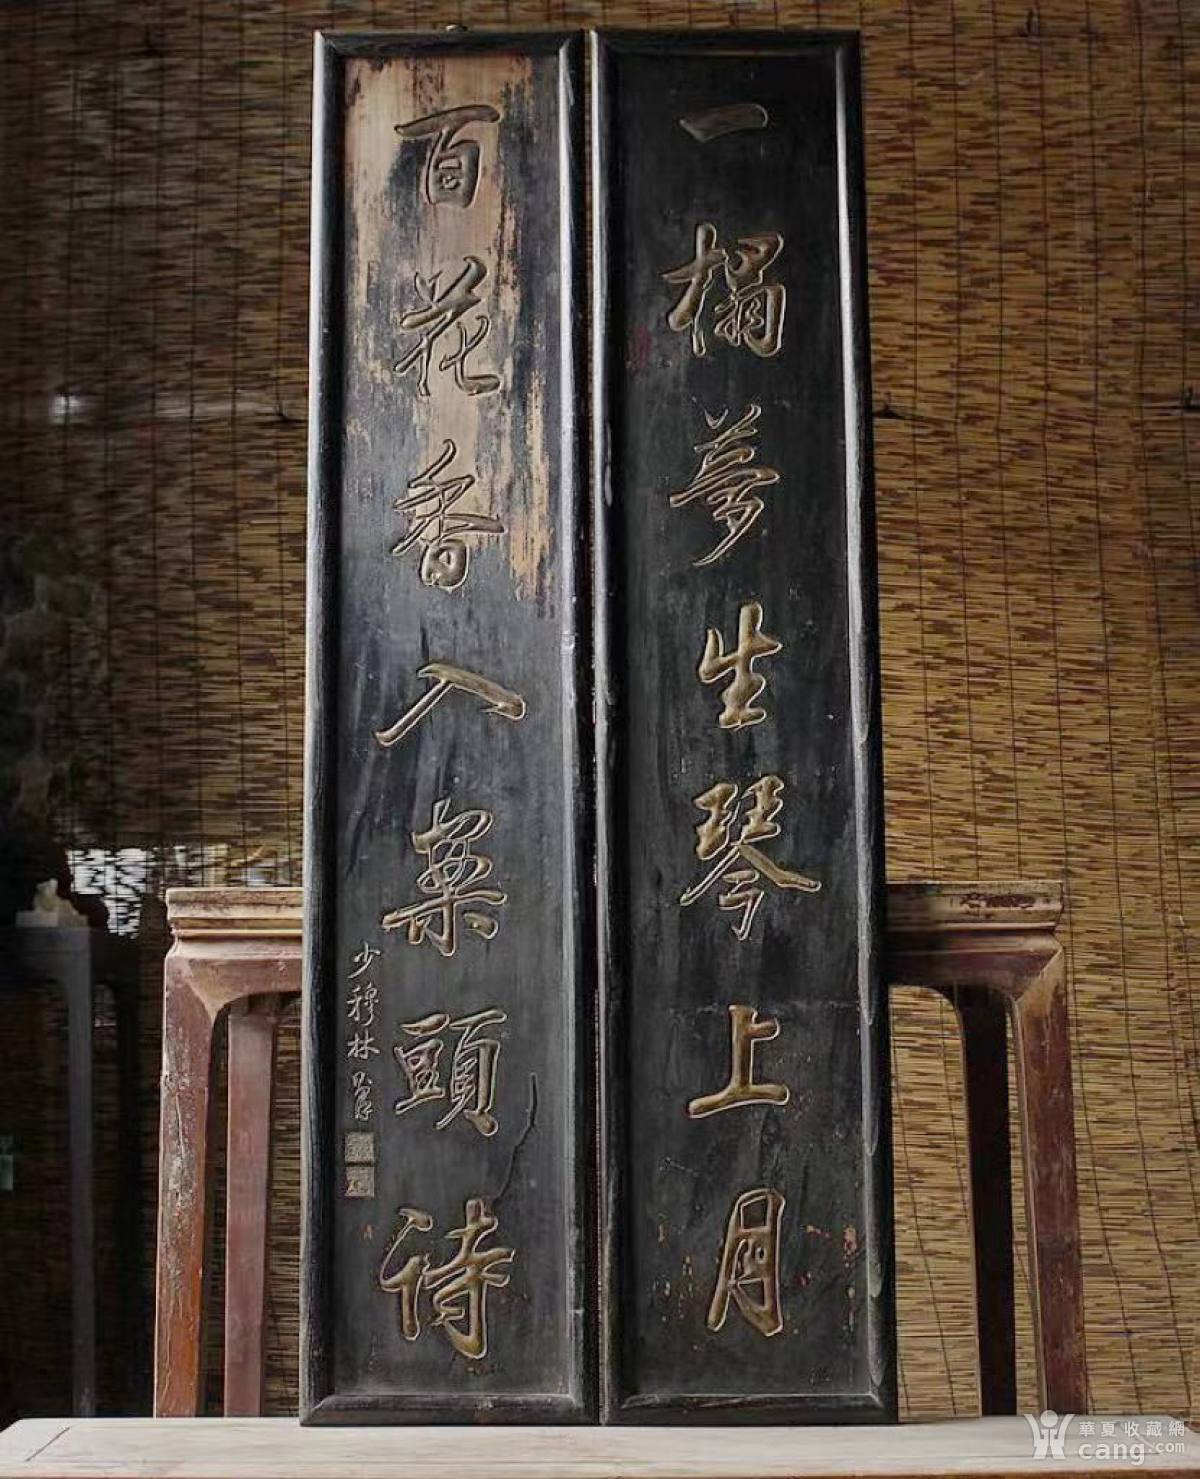 一榻夢生琴上月
百花香入案頭詩
少穆林
華夏收藏網
cang.com